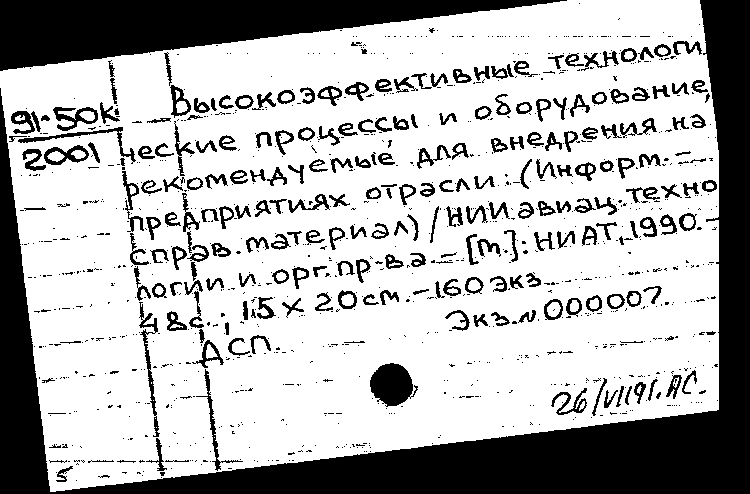 91-50к
2001
Высокоэффективные технологи
ческие процессы и оборудование,
рекомендуемые для внедрения на
предприятиях отрасли: (Информ.-
справ. материал) / НИИ авиац. техно
логии и орг. пр-ва. - [М.]: НИАТ, 1990. -
48с.; 15 х 20 см. - 160 экз.
Экз. N 000007.
ДСП.
26/VII91. АС.
5